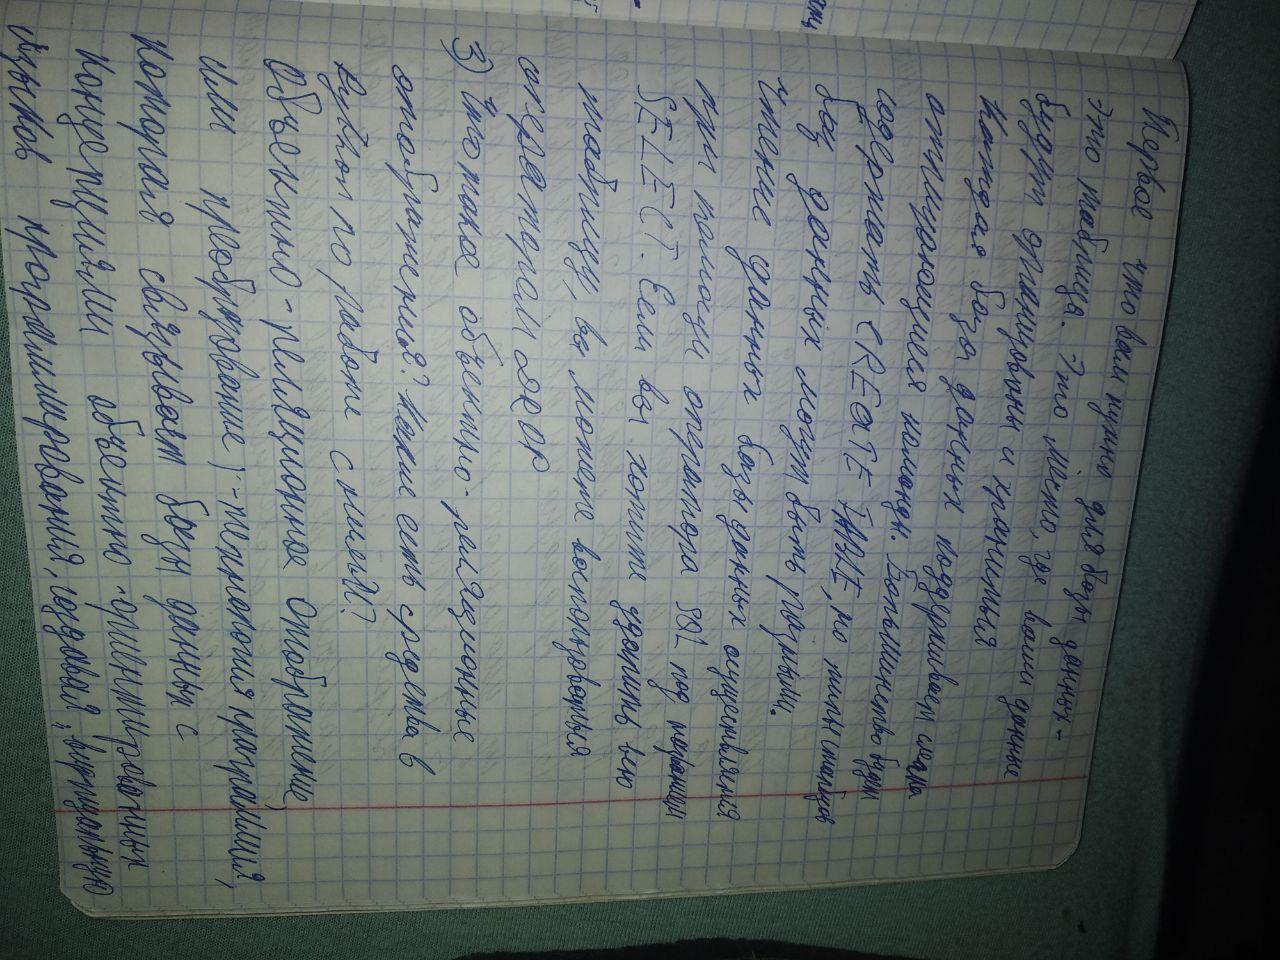 Первое что вам нужно для базы данных -
это таблица. Это место, где ваши данные
будут организованы и храниться
Каждая база данных поддерживает слегка
отличающиеся команды. Большинство будут
содержать CREATE TABLE, но типы
баз данных могут быть разными.
Чтение данных базы данных осуществляется
при помощи оператора SQL под названием
SELECT. Если вы хотите удалить всю
таблицу, вы можете воспользоваться
оператором DROP
3) Что такое объектно-реляционные
отображения? Какие есть средства в
Python по работе с ними?
Объектно-реляционное отображение,
или преобразование) - технология программирования,
Которая связывает базы данных с
Концепциями объектно-ориентированных
языков программирования, создавая "виртуальную